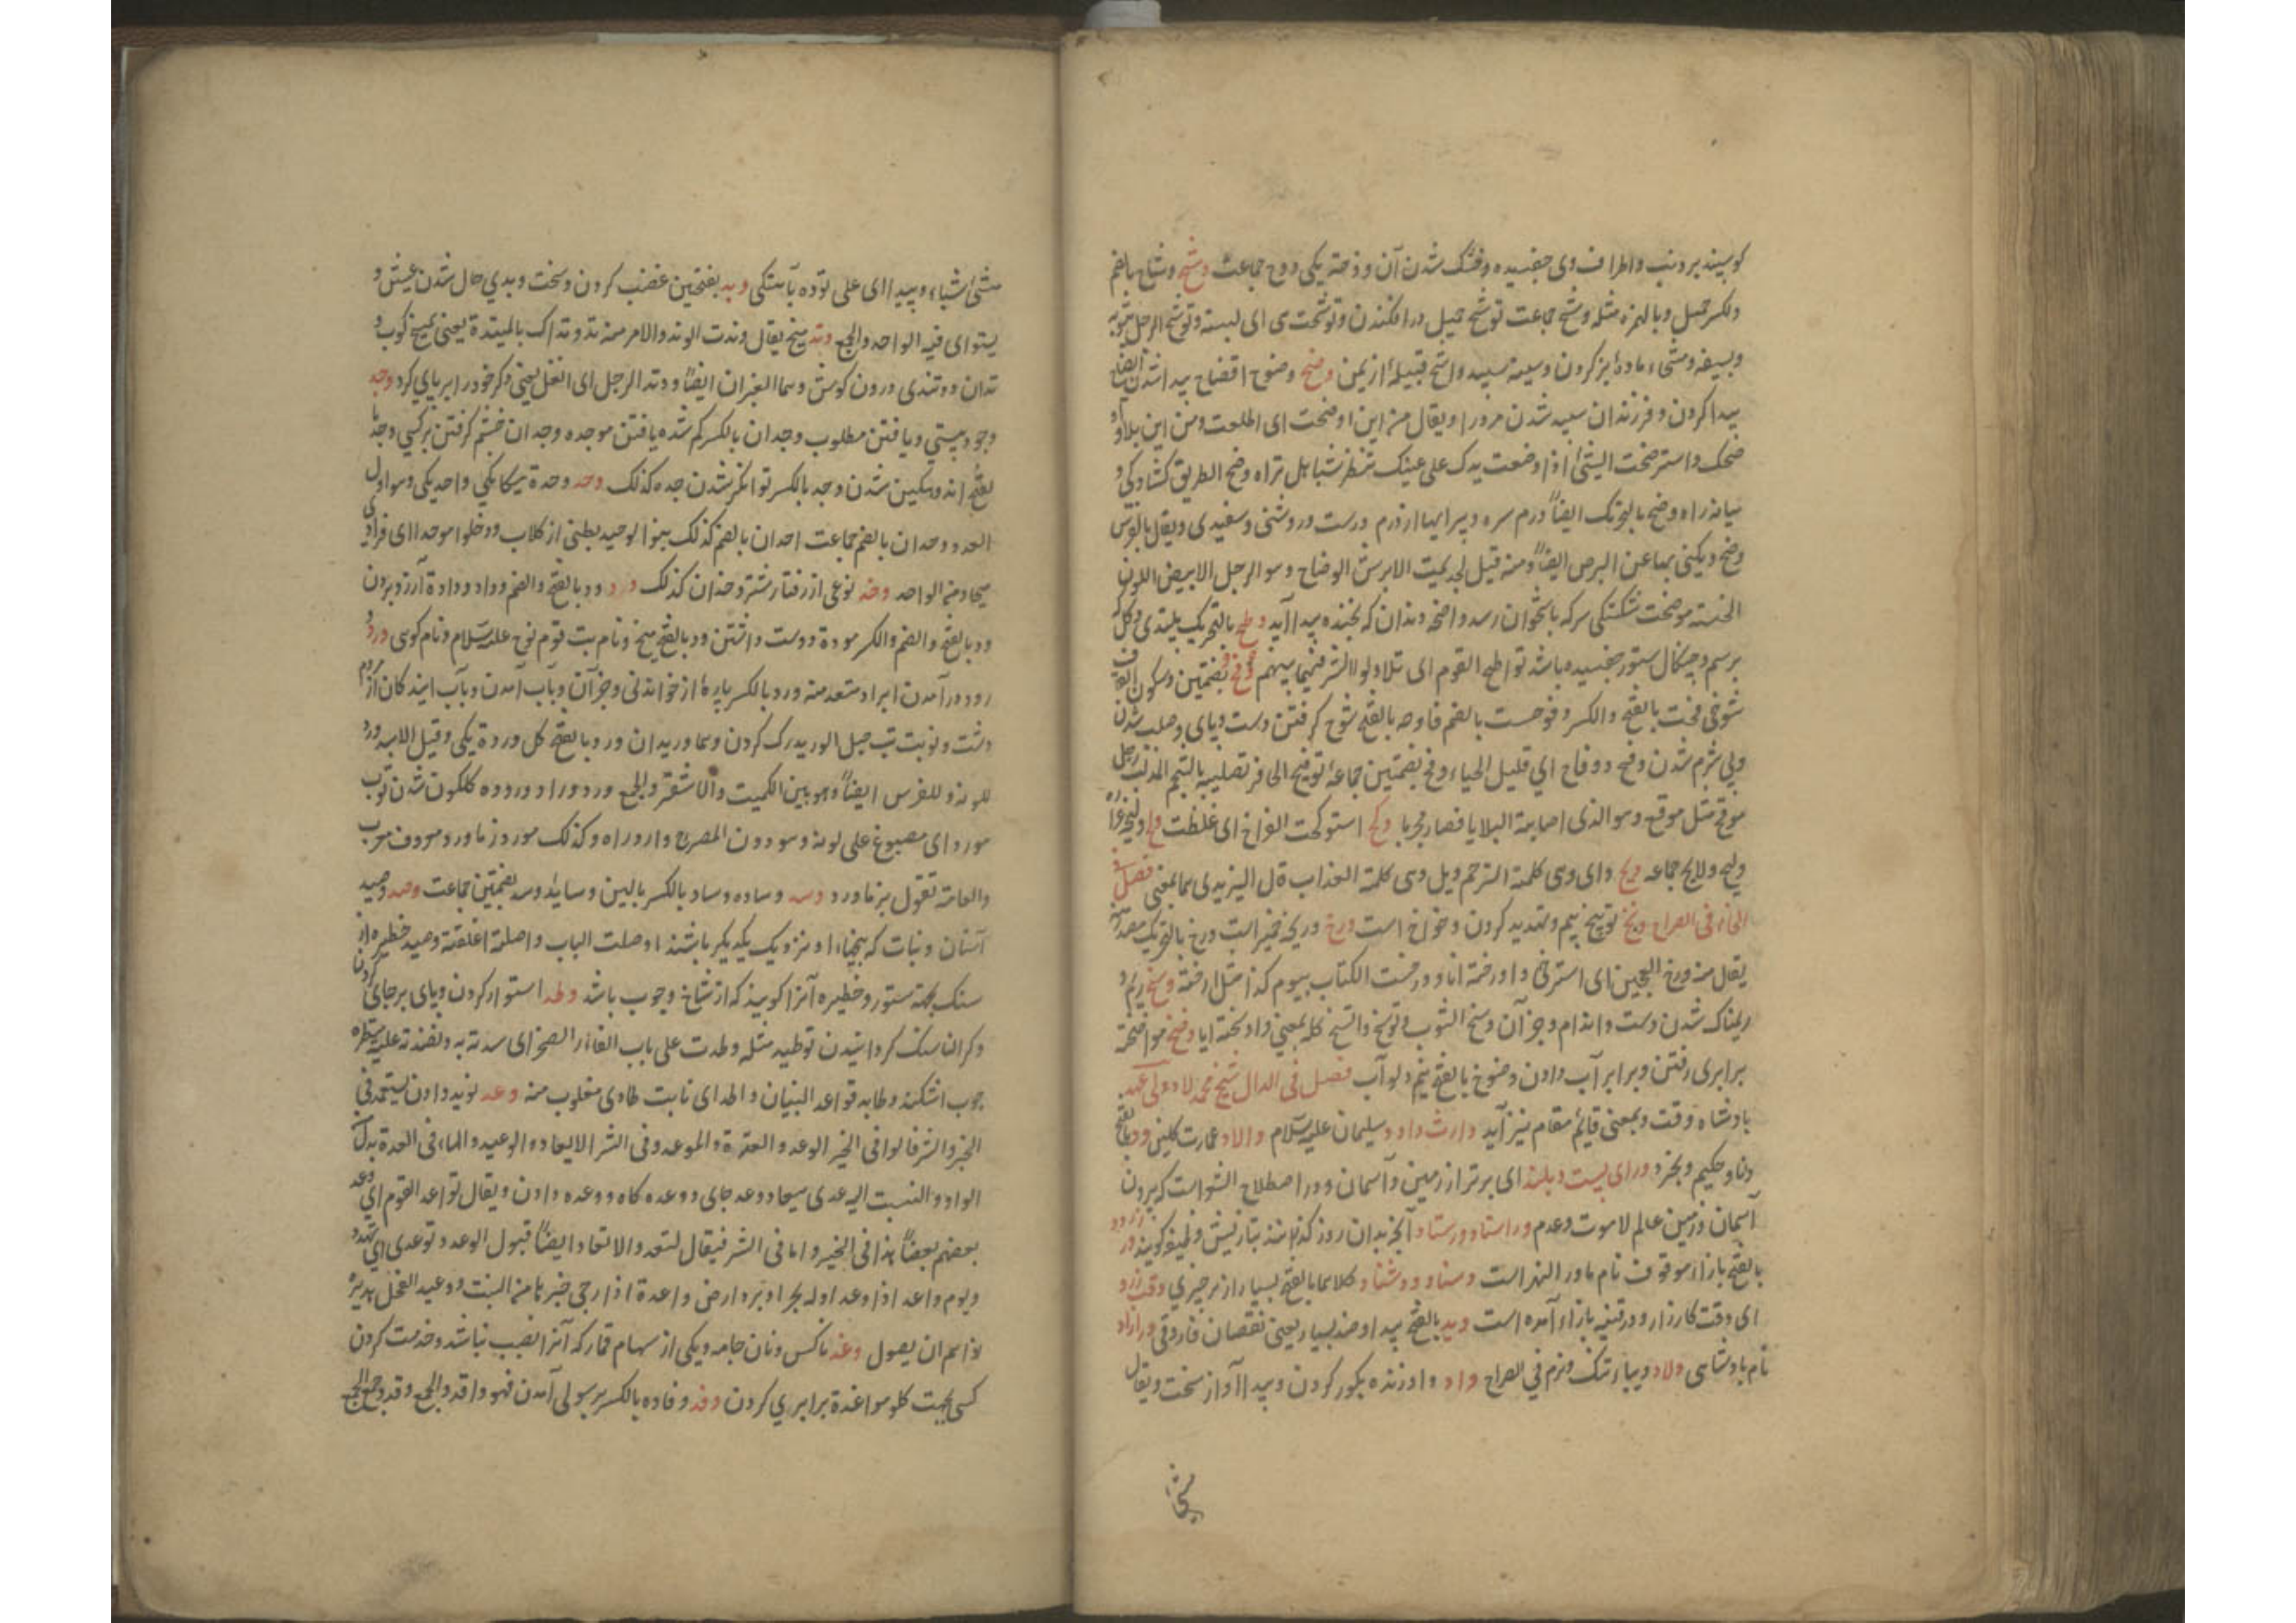 کوسپند بر دنب و اطراف وی جفسیده و خشک شدن آن و ذحة یکی و وح جماعت وشح وشاح بالضم
و لکسر حمیل و بالهمزه مثله وشح جماعت توشح حمیل در افکندن و توشحت هی ای لبسته و توشح الرجل بثوبه
و بسیفه و شیء ماده بز کردن وسیمه سپید واشح قبیلهٔ از یمن وضح وضوح اتضاح پیدا شدن ایضاح
پیدا کردن و فرزندان سپید شدن مرد را و یقال من این اوضحت ای اطلعت و من این بدا و
ضحک و استوضحت الشیٔ اذا وضعت یدک علی عینک تنظر شیا هل تراه وضح الطریق کشادکی و
میانهٔ راه وضح بالتحریک ایضاً درم سره و پیرایها از درم درست و روشنی و سفیدی و یقال بالفرس
وضح و یکنی بها عن البرص ایضاً و منه قیل لجذیمت الابرش الوضاح و هو الرجل الابیض اللون
الحسنه موضحت شکستکی سر که باستخوان رسد واضحه دندان که بخنده پیدا آید وطح بالتحریک پلیدی و کل
بر سم و چنکال ستور جفسیده باشد تواطح القوم ای تداولوا الشر فیما بینهم وقح وقح بضمتین و سکون القاف
شوخی قحت بالفتح و الکسر وقوحت بالضم وقاحه بالفتح شوخ کرفتن دست و پای و صلب شدن
و بی شرم شدن وقح و وقاح ای قلیل الحیاء وقح بضمتین جماعه توقیح الحافر تصلیبه بالشحم المذاب رجل
موقح مثل موقع و هو الذی اصابته البلایا فصار مجربا وکح استوکحت الفراخ ای غلظت ولح ولیحه غراره
ولیح و ولایح جماعه ویح وای وهی کلمة الترحم ویل وهی کلمة العذاب قال الیزیدی هما بمعنی فصل فی
الخاء فی الصراح وبخ توبیخ بیم و تهدید کردن و خواخ است ورخ وریخه خیر است ورخ بالتحریک مصدر منه
یقال منه ورخ العجین ای استرخی و اورخته انا و ورخت الکتاب بیوم کذا مثل ارخته وسخ ریم و
ریمناک شدن دست و اندام و جز آن وسخ الثوب و توسخ و اتسخ کله بمعنی و اوسخته انا وضخ مواضخة
برابری رفتن و برابر آب دادن وضوخ بالفتح نیم دلو آب فصل فی الدال شیخ محمد لاد ولی عهد
پادشاه وقت و بمعنی قایم مقام نیز آید وارث داود سلیمان علیه السلام والاد عمارت کلین ود بالفتح
دنا و حکیم و بخرد ورای پست و بلند ای برتر از زمین و آسمان و در اصطلاح الشواست که برون
آسمان و زمین عالم لاهوت و عدم وراستاد ورستاد آنچه بدان روز کذرانند بتازیش وظیفه کویند ورزرود
بالفتح با زاء موقوف نام ماوراء النهر است وسناد ووشناد کلاهما بالفتح بسیار از هر چیزی وقت زرد
ای وقت کارزار و در قنیه بازاء آمده است وید بالفتح پیدا و ضد بسیار یعنی نقصان فاروقی ورازاد
نام پادشاهی ولاد دیباء تنک و نرم فی الصراح واد و اد زنده بکور کردن وئید ا آواز سخت و یقال
مشی
مشی اشیاء وئیدا ای علی توده بآهستکی وبد بفتحتین غضب کردن و سخت و بدی حال شدن عیش و
یستوای فیه الواحد و الجمع وتد میخ یقال وتدت الوتد و الامر منه تد وتداک بالمیتدة یعنی میخ کوب و
تدان دو تندی درون کوش و هما العیران ایضاً و وتد الرجل ای انعظ یعنی ذکر خود را بر پای کرد وجد
وجود هستی و یافتن مطلوب وجدان بالکسر کم شده یافتن موجده وجدان خشم کرفتن بر کسی وجد با
لفتح اندوهکین شدن وجد بالکسر توانکر شدن جده کذلک وحد وحدة یکانکی واحد یکی و هو اول
العدد وحدان بالضم جماعت احدان بالضم کذلک بنو الوحید بطنی از کلاب و دخلوا موحدا ای فرادی
میحاد من الواحد وخد نوعی از رفتار شتر وخدان کذلک ودد ود بالفتح و الضم و وداد و ودادة آرزو بردن
ود بالفتح و الضم و الکسر مودة دوست داشتن ود بالفتح میخ و نام بت قوم نوح علیه السلام و نام کوهی ورد و
رود در آمدن ایراد متعد منه ورد بالکسر پارهٔ از خواندنی و جز آن و بآب آمدن و بآب آیندکان از مردم
دشت و نوبت تب حبل الورید رک کردن و هما وریدان ورد بالفتح کل وردة یکی و قیل الاسد ورد
للونه و للفرس ایضاً و هو بین الکمیت و الاشقر و الجمع ورد وراد و روده کلکون شدن ثوب
مورد ای مصبوغ علی لونه و هو دون المضرج و ارد وراه و کذلک مورد زماورد معروف معرب
و العامة تقول بزماورد وسد وساده وساد بالکسر بالین وساید وسد بضمتین جماعت وصد وصید
آستان و نبات که بیخهاء او نزدیک یکدیکر باشند اوصدت الباب و اصدته اغلقته وصید حظیره از
سنک بجهة ستور و حظیره آنرا کویند که از شاخ و چوب باشد وطد استوار کردن و پای بر جای کردن
و کران سنک کردانیدن توطید مثله وطدت علی باب الغار الصخر ای سدته به و نضدته علیه میطده
چوب اشکنه و طابه قواعد البنیان واطد ای ثابت طادی مقلوب منه وعد نوید دادن یستعمل فی
الخیر و الشر قالوا فی الخیر الوعد و العدة و الموعد و فی الشر الایعاد و الوعید و الهاء فی العدة بدل
الواو و النسبت الیه عدی میعاد وعده جای و وعده کاه و وعده دادن و یقال تواعد القوم ای وعد
بعضهم بعضاً هذا فی الخیر و اما فی الشر فیقال اتعد و الاتعاد ایضاً قبول الوعد و توعدی ای تهدد
و یوم واعد اذا وعد اوله بحر او برد و ارض واعدة اذا رجی خیرها من النبت و وعید الفحل هدیره
اذا هم ان یصول وغد ناکس و نان جامه و یکی از سهام قمار که آنرا نصیب نباشد و خدمت کردن
کسی بجهت کلو مواغدة برابری کردن وفد وفاده بالکسر برسولی آمدن فهو وافد و الجمع وفد و جمع الجمع